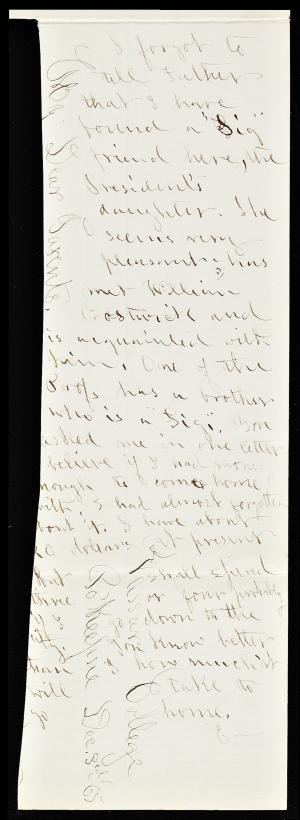 I forgot to
tell Father
that I have
found a "Sig"
friend here, the
President's
daughter. She
seems very
pleasant & has
met William
Bostwick and
is acquainted with
him. One of the
Profs has a brother
who is a "Sig". You
asked me in one letter
believe if I had money
nough to come home
with, I had almost forgotten
bout it. I have about
20 dollars at present
but shall spend
three or four probably
if I go down to the
city. You know better
than I how much it
will take to
go home.
My Dear Parents.
Vassar College
Po'keepsie Dec.